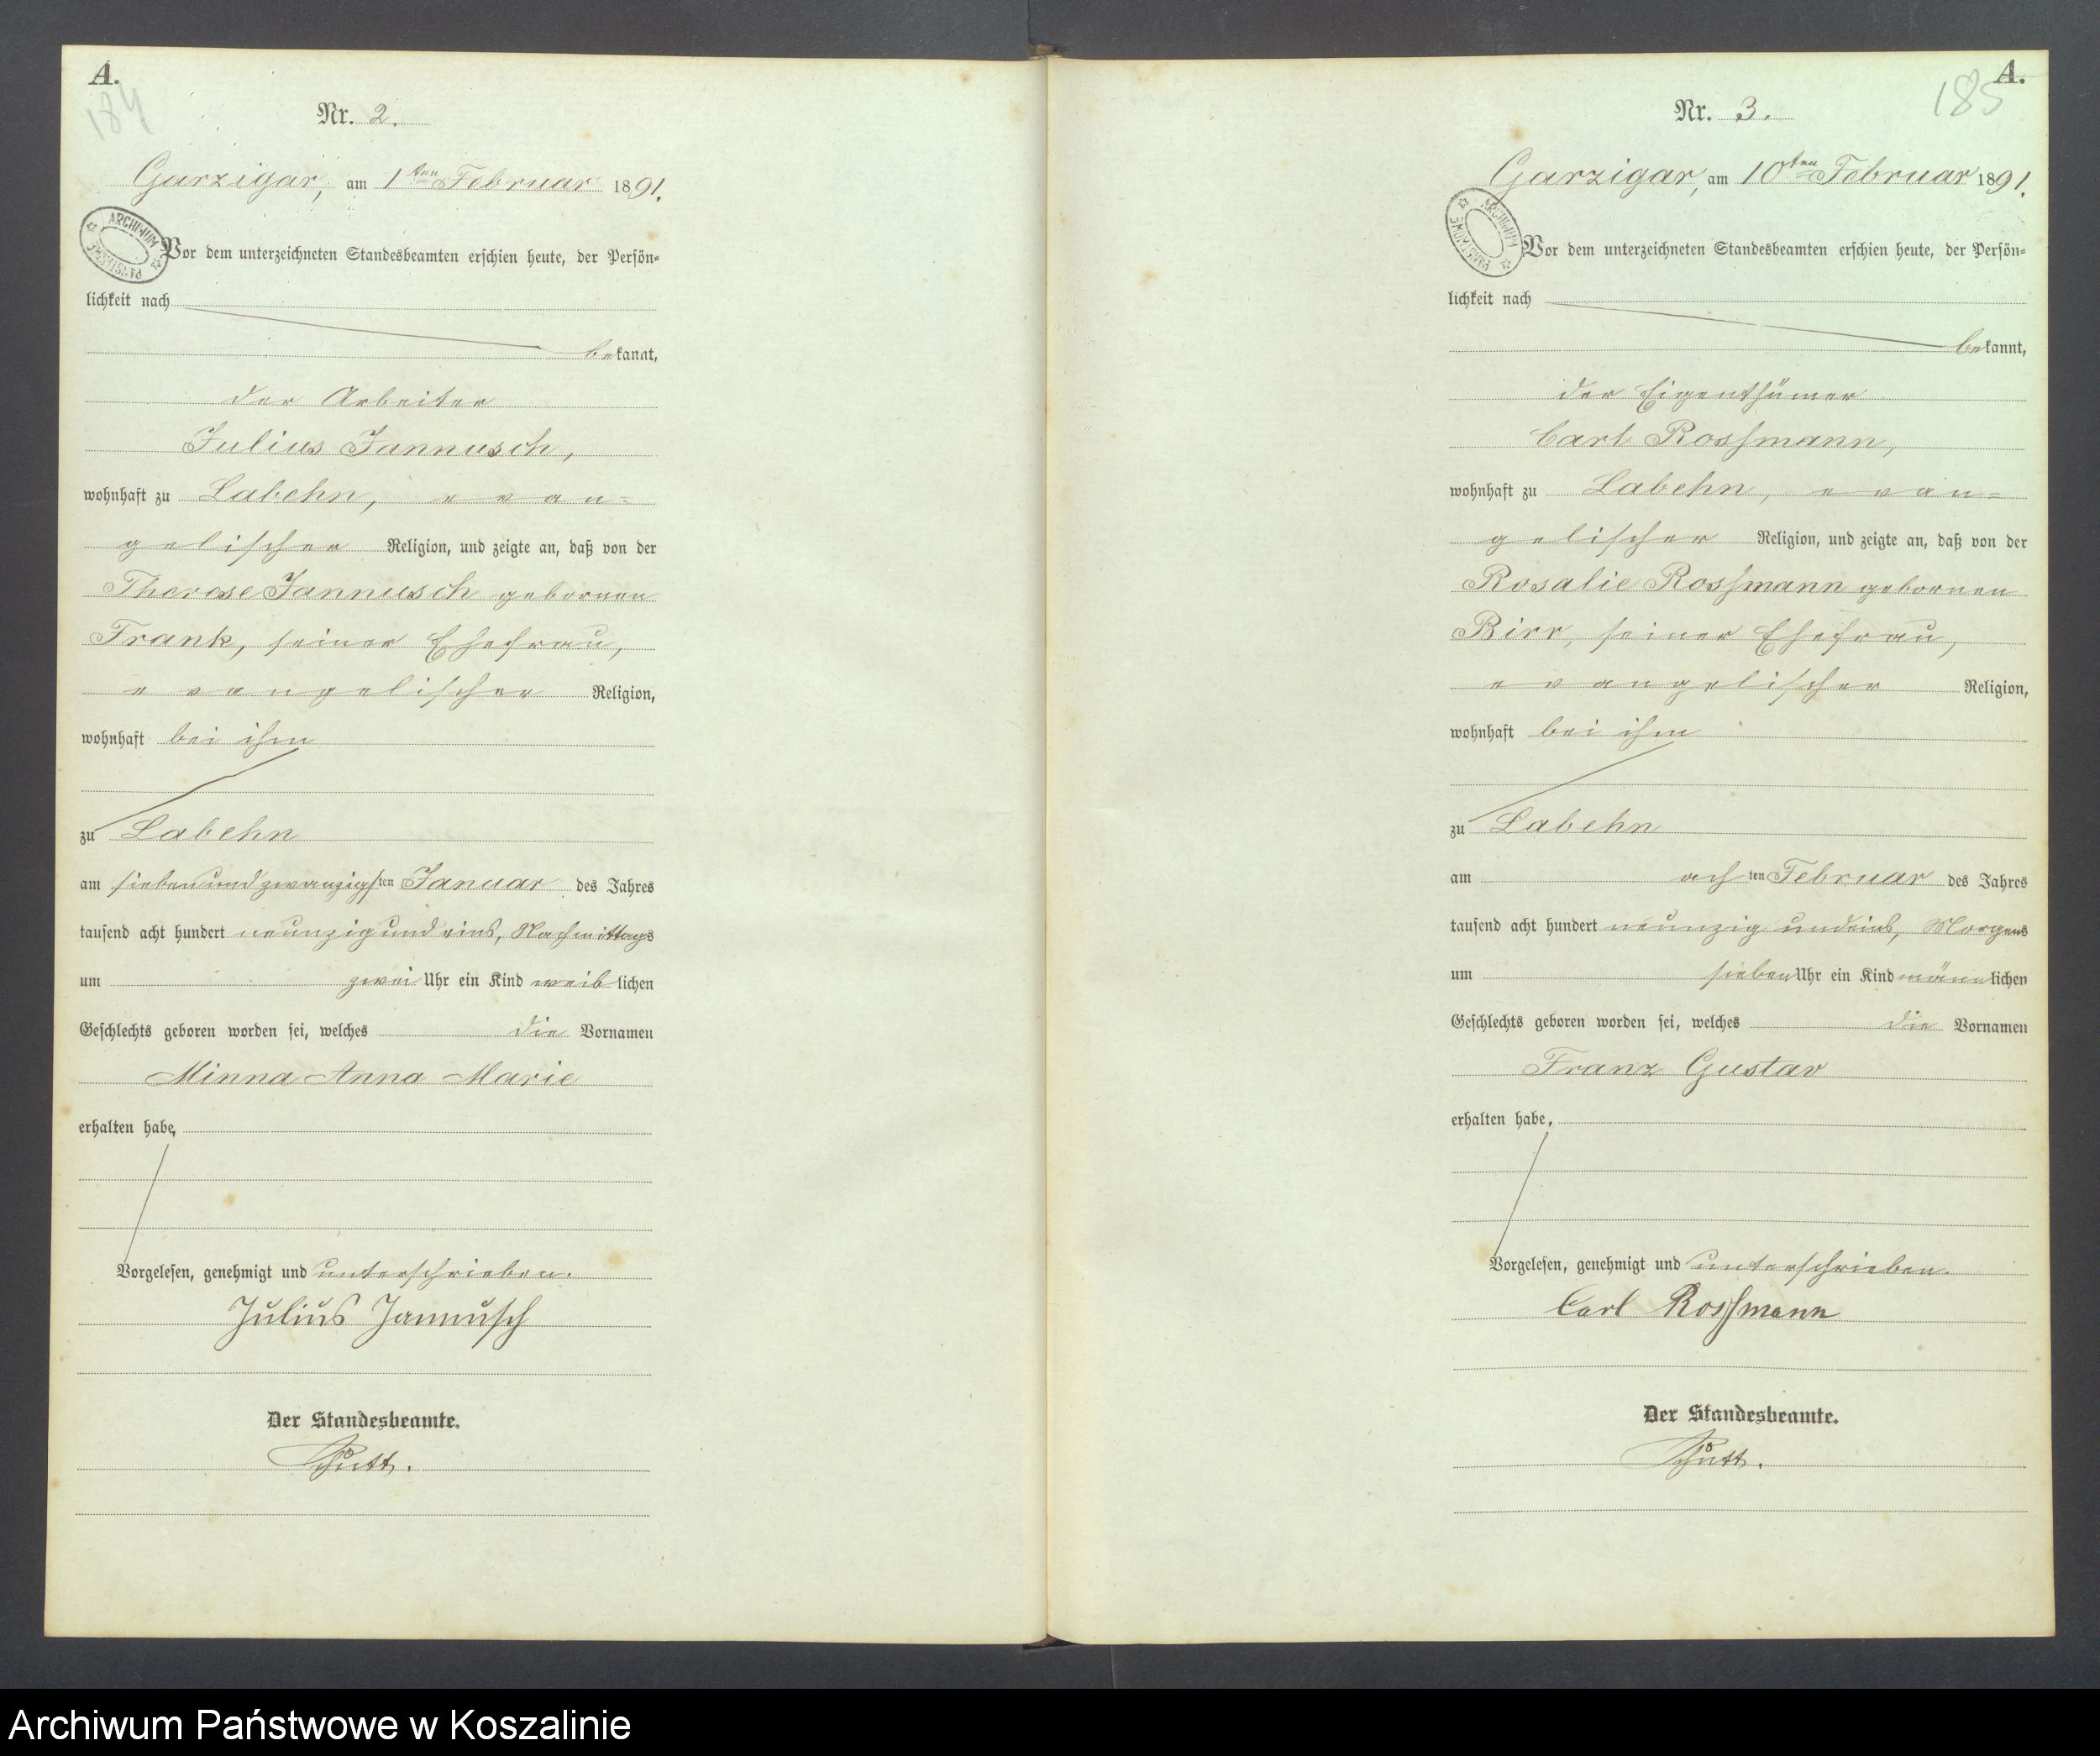 A.
184
Nr. 2.
Garzigar, am 1ten Februar 1891.
ARCHIWUM PAŃSTWOWE
Vor dem unterzeichneten Standesbeamten erschien heute, der Persön-
lichkeit nach
bekannt,
der Arbeiter
Julius Jannusch,
wohnhaft zu Labehn, evan-
gelischer Religion, und zeigte an, daß von der
Therese Jannusch gebornen
Frank, seiner Ehefrau,
evangelischer Religion,
wohnhaft bei ihm
zu Labehn
am siebenundzwanzigsten Januar des Jahres
tausend acht hundert neunzig und eins, Nachmittags
um zwei Uhr ein Kind weiblichen
Geschlechts geboren worden sei, welches die Vornamen
Minna Anna Marie
erhalten habe,
Vorgelesen, genehmigt und unterschrieben.
Julius Jannusch
Der Standesbeamte.
A.
185
Nr. 3.
Garzigar, am 10ten Februar 1891.
ARCHIWUM PAŃSTWOWE
Vor dem unterzeichneten Standesbeamten erschien heute, der Persön-
lichkeit nach
bekannt,
der Eigenthümer
Carl Rossmann,
wohnhaft zu Labehn, evan-
gelischer Religion, und zeigte an, daß von der
Rosalie Rossmann gebornen
Birr, seiner Ehefrau,
evangelischer Religion,
wohnhaft bei ihm
zu Labehn
am achten Februar des Jahres
tausend acht hundert neunzig und eins, Morgens
um sieben Uhr ein Kind männlichen
Geschlechts geboren worden sei, welches die Vornamen
Franz Gustav
erhalten habe.
Vorgelesen, genehmigt und unterschrieben.
Carl Rossmann
Der Standesbeamte.
Archiwum Państwowe w Koszalinie